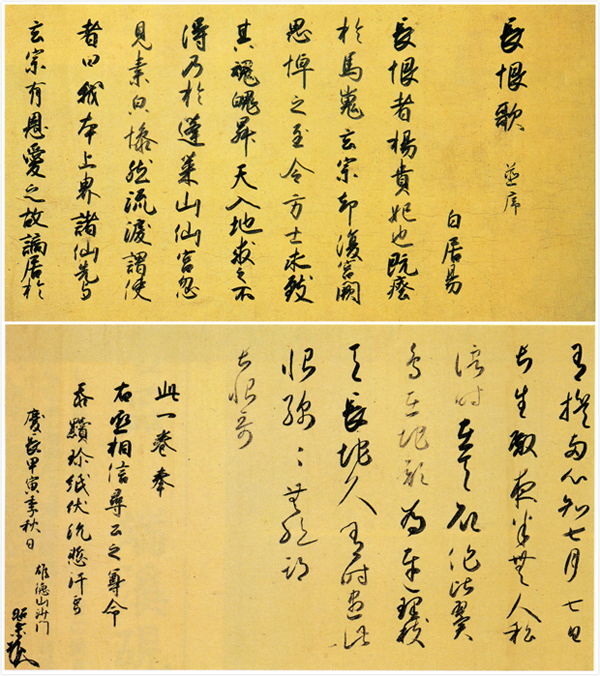 長恨歌 並序
白居易
長恨者楊貴妃也既瘞
於馬嵬玄宗却復宮闕
思悼之至令方士求致
其魂魄昇天入地求之不
得乃於蓬莱山仙宮忽
見素 惨然流涙謂使
者曰我本上界諸仙先与
玄宗有恩愛之故謫居於
有誓両心知七月七日
長生殿夜半無人私
語時在天願作比翼
鳥在地願為連理枝
天長地久有時尽此
恨綿々無絶期
長恨哥
此一巻奉
右丞相信尋公之尊命
忝黷珍紙伏 慙汗
慶長甲寅季秋日
雄徳山沙門
昭乗